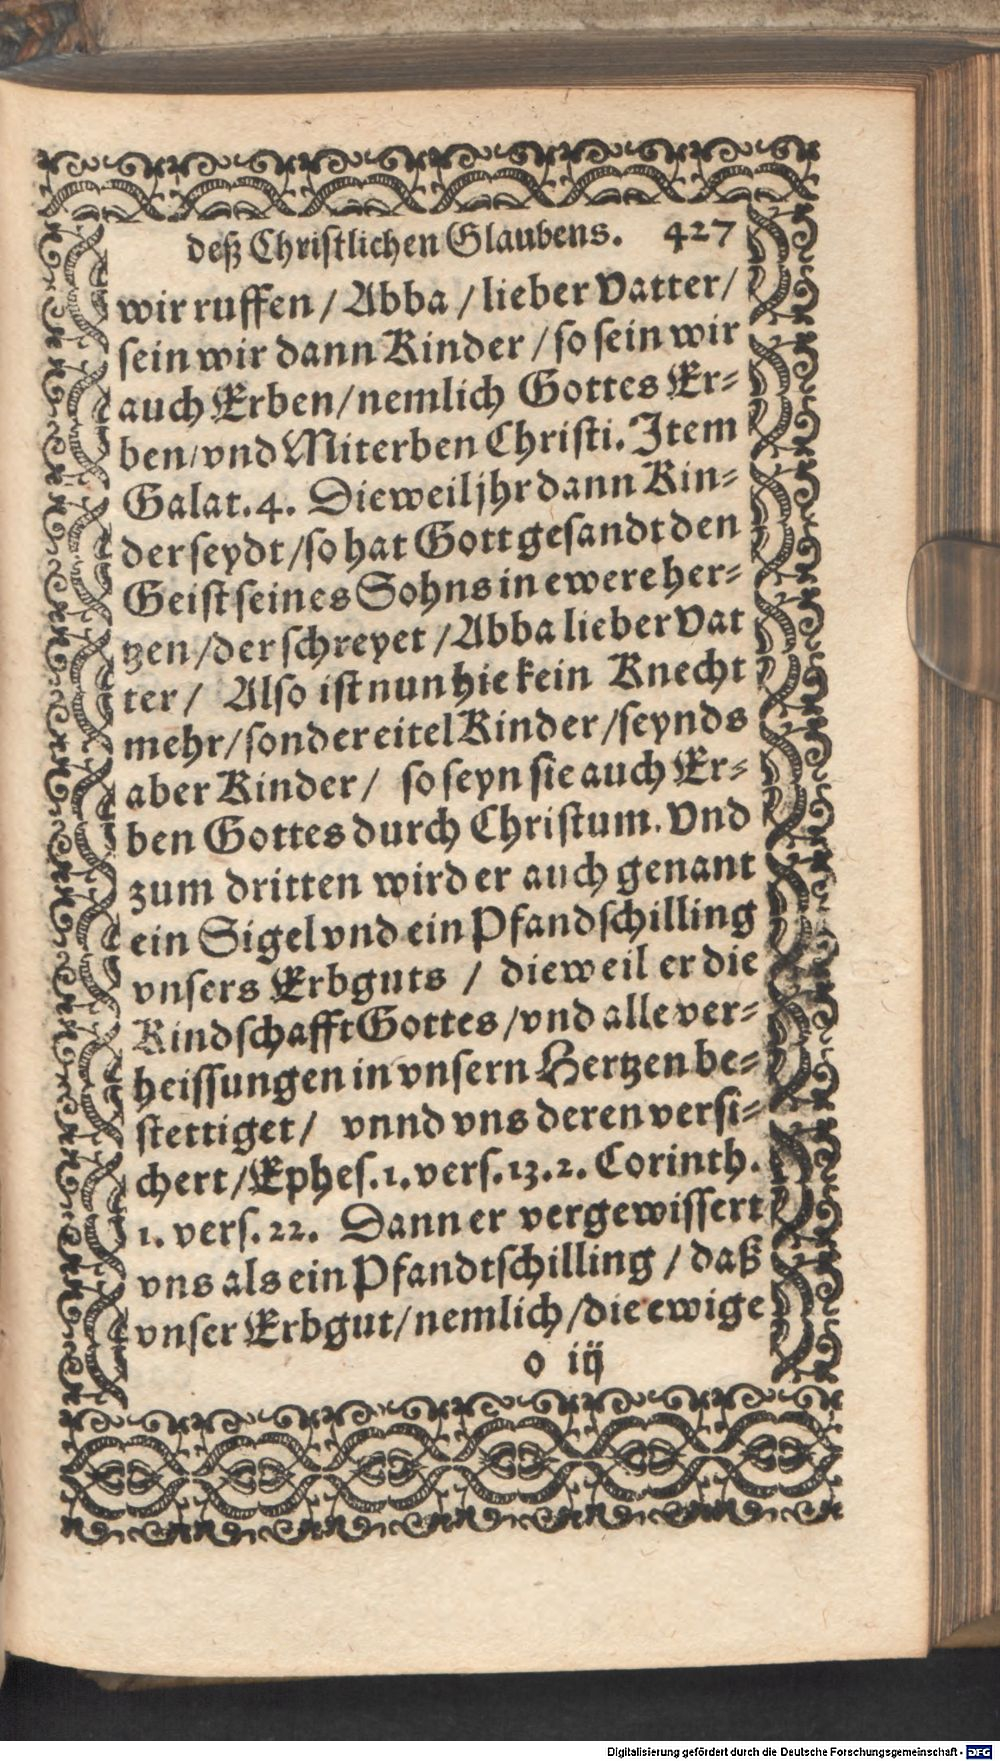 deß Christlichen Glaubens. 427
wir ruffen / Abba / lieber Vatter /
sein wir dann Kinder / so sein wir
auch Erben / nemlich Gottes Er-
ben / vnd Miterben Christi. Item
Galat. 4. Dieweil jhr dann Kin-
der seydt / so hat Gott gesandt den
Geist seines Sohns in ewere her-
tzen / der schreyet / Abba lieber Vat
ter / Also ist nun hie kein Knecht
mehr / sonder eitel Kinder / seynds
aber Kinder / so seyn sie auch Er-
ben Gottes durch Christum. Vnd
zum dritten wird er auch genant
ein Sigel vnd ein Pfandschilling
vnsers Erbguts / dieweil er die
Kindschafft Gottes / vnd alle ver-
heissungen in vnsern Hertzen be-
stettiget / vnnd vns deren versi-
chert / Ephes. 1. vers. 13. 2. Corinth.
1. vers. 22. Dann er vergewissert
vns als ein Pfandtschilling / daß
vnser Erbgut / nemlich / die ewige
o iij
Digitalisierung gefördert durch die Deutsche Forschungsgemeinschaft - DFG